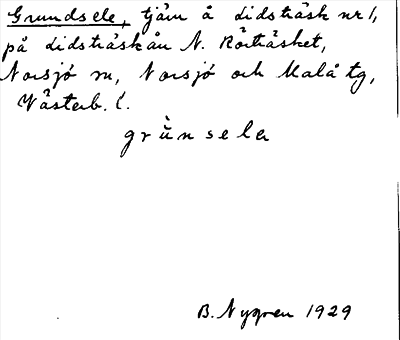 Grundsele, tjärn å Lidsträsk nr 1,
på Lidsträskån N. Rörträsket,
Norsjö sn, Norsjö och Malå tg,
Västerb. l.
grùnsela
B. Nygren 1929